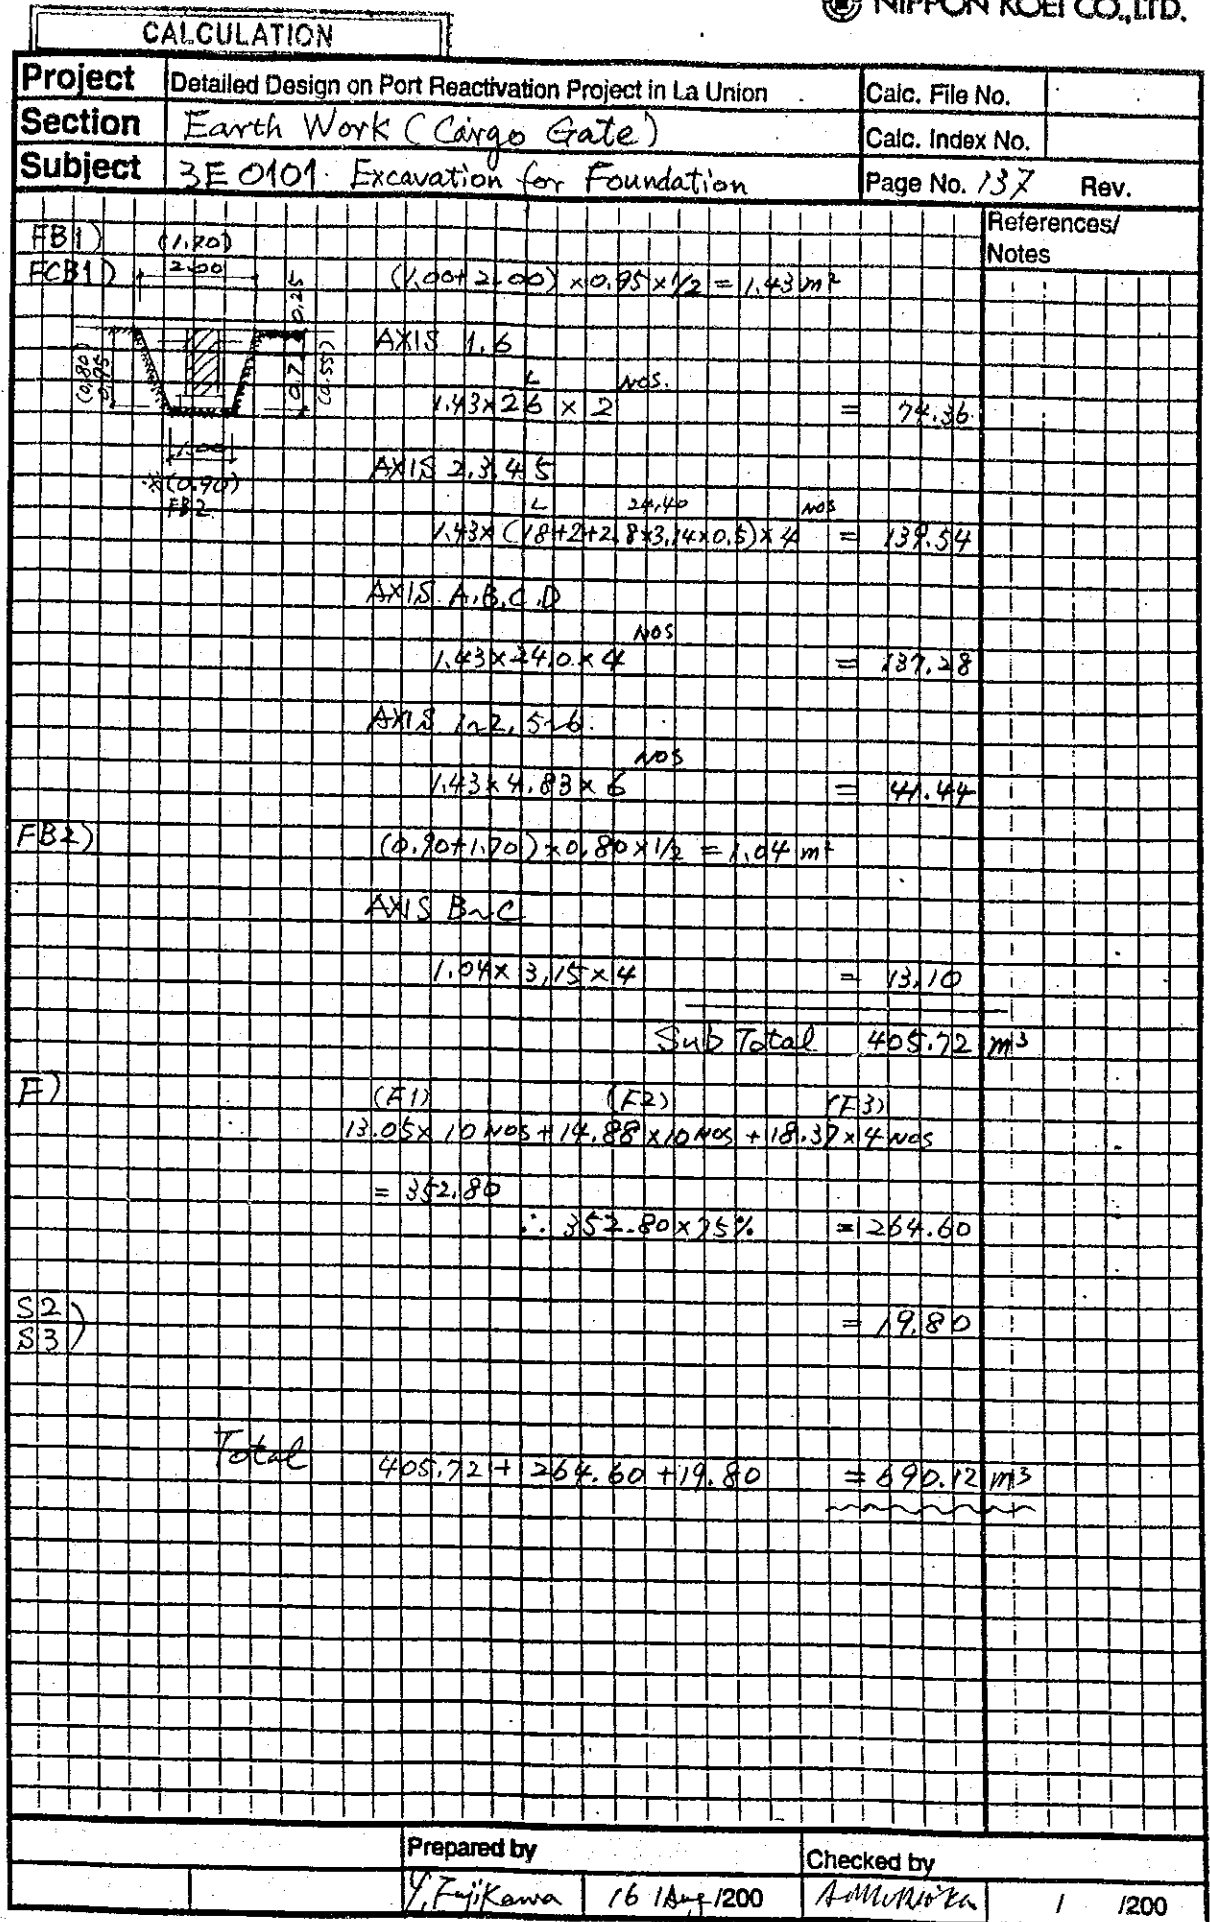 NIPPON KOEI CO.,LTD.
CALCULATION
Project Detailed Design on Port Reactivation Project in La Union Calc. File No.
Section Earth Work (Cargo Gate) Calc. Index No.
Subject 3E0101. Excavation for Foundation Page No. 137 Rev.
References/
Notes
FB1) (1.70)
FCB1) 2.00 (1.00+2.00)×0.95×1/2 = 1.43 m²
0.25
AXIS 1.6
(0.80) 0.95 0.7 (0.55)
L NOS.
1.43×26×2 = 74.36
1.00
AXIS 2,3,4,5
※(0.90)
FB2
L 24.40 NOS
1.43×(18+2+2.8×3.14×0.5)×4 = 139.54
AXIS A,B,C,D
NOS
1.43×24.0×4 = 137.28
AXIS 1~2, 5~6.
NOS
1.43×4.83×6 = 41.44
FB2) (0.90+1.70)×0.80×1/2 = 1.04 m²
AXIS B~C
1.04×3.15×4 = 13.10
Sub Total 405.72 m³
F) (F1) (F2) (F3)
13.05×10 NOS + 14.88×10 NOS + 18.37×4 NOS
= 352.80
∴ 352.80×75% = 264.60
S2
S3) = 19.80
Total 405.72 + 264.60 + 19.80 = 690.12 m³
Prepared by Checked by
Y. Fujikawa 16 /Aug /200 / /200